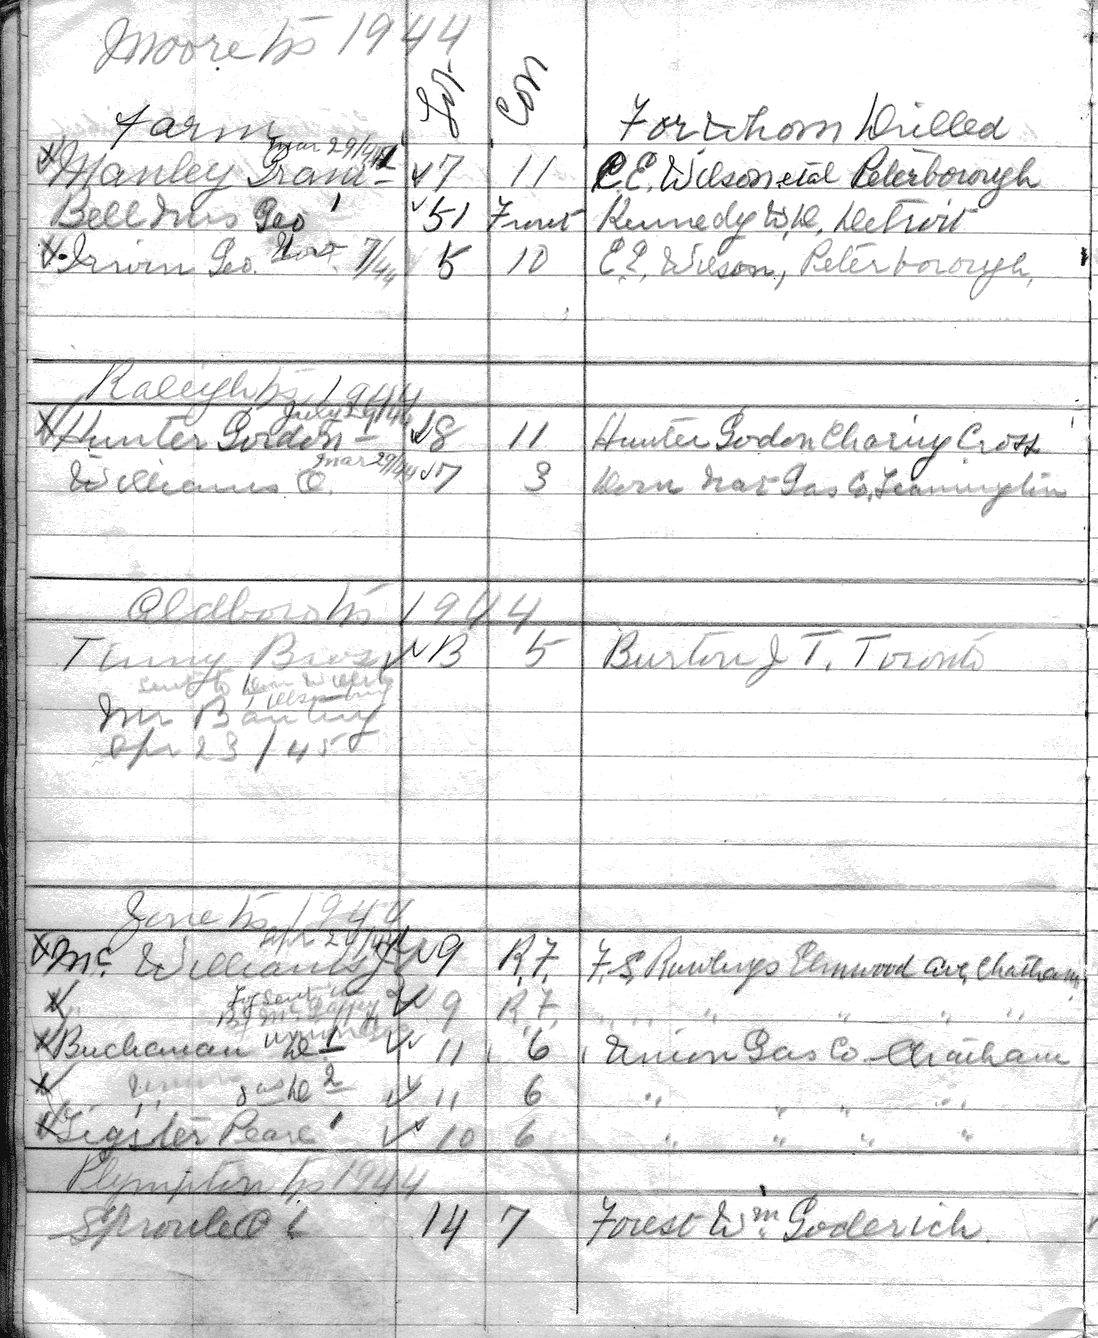 Moore tp 1944
Farm Lot Con For Whom Drilled
Mar 29/44
Manley Grant 1 7 11 E.E. Wilson et al Peterborough
Bell Mrs Geo 1 51 Front Kennedy W.D. Detroit
Irwin Geo. Nov 7/44 5 10 E.E. Wilson, Peterborough,
Raleigh tp 1944
July 29/44
Hunter Gordon 18 11 Hunter Godon Charing Cross
Mar 29/44
Williams O. 17 3 Dom Nat Gas Co, Leamington
Aldboro tp 1944
Bros B 5 Burton J T. Toronto
sent to
Mr
Apr 23/45
Zone tp 1944
Apr 29/44
Mc Williams J 9 R.F. F.S. Rawlings Elmwood Ave, Chatham
" 2 9 R.F. " " " " " "
Buchanan D 1 11 6 Union Gas Co Chatham
" D 2 11 6 " " " "
Sigster Pearl 1 10 6 " " " "
Plympton tp 1944
Sproule O L 14 7 Forest Wm Goderich.